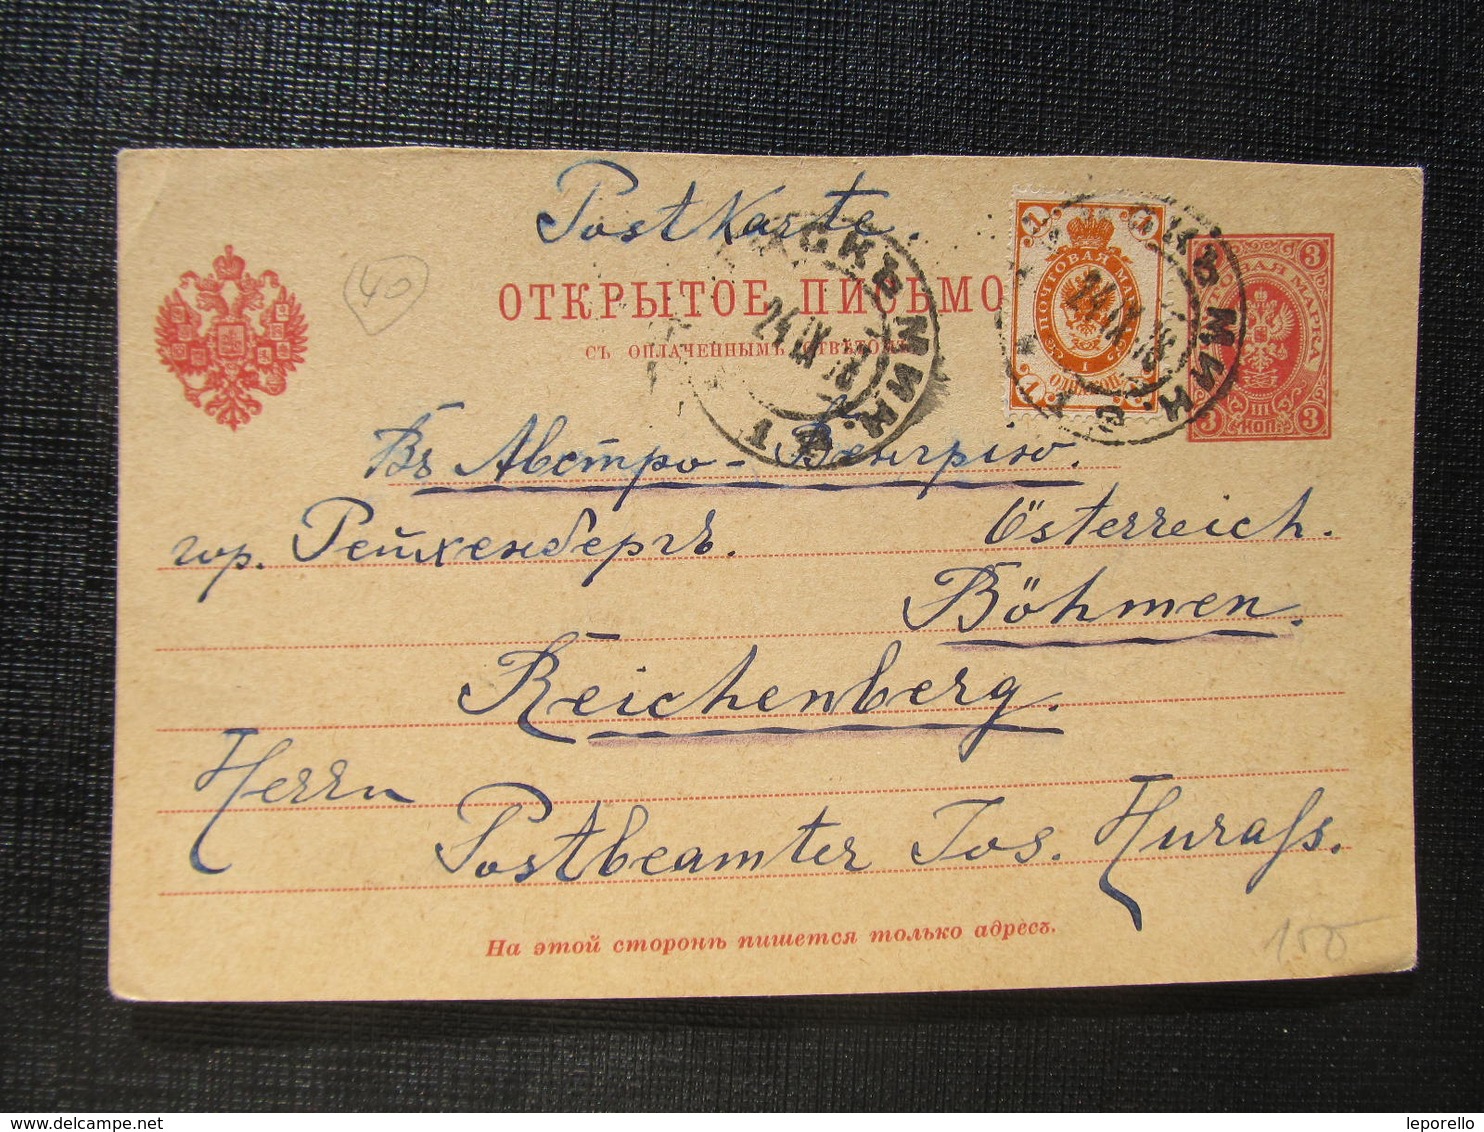 PostKarte.
40
ОТКРЫТОЕ ПИСЬМО
СЪ ОПЛАЧЕННЫМЪ ОТВѢТОМЪ
24 IX
МИН.
1 ПОЧТОВАЯ МАРКА 1
3 ПОЧТОВАЯ МАРКА 3
III
3 КОП. 3
Въ Австро-Венгрію.
гор. Рейхенбергъ.
Österreich.
Böhmen.
Reichenberg.
Herrn
Postbeamter Jos.
На этой сторонѣ пишется только адресъ.
leporello